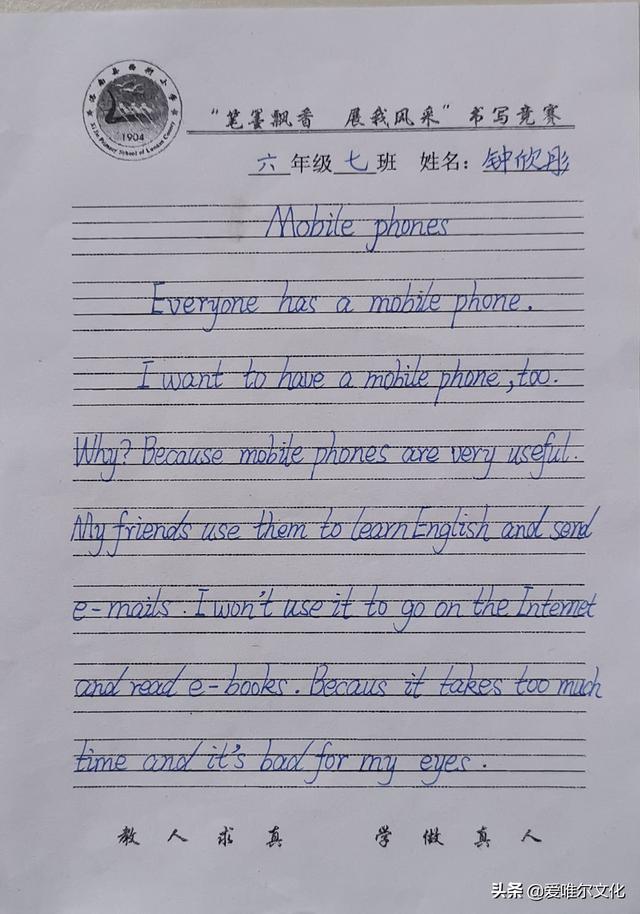 "笔墨飘香 展我风采"书写竞赛
1904
六年级七班 姓名：钟欣彤
Mobile phones
Everyone has a mobile phone.
I want to have a mobile phone, too.
Why? Because mobile phones are very useful.
My friends use them to learn English and send
e-mails. I won't use it to go on the Internet
and read e-books. Becaus it takes too much
time and it's bad for my eyes.
教人求真 学做真人
头条 @爱唯尔文化